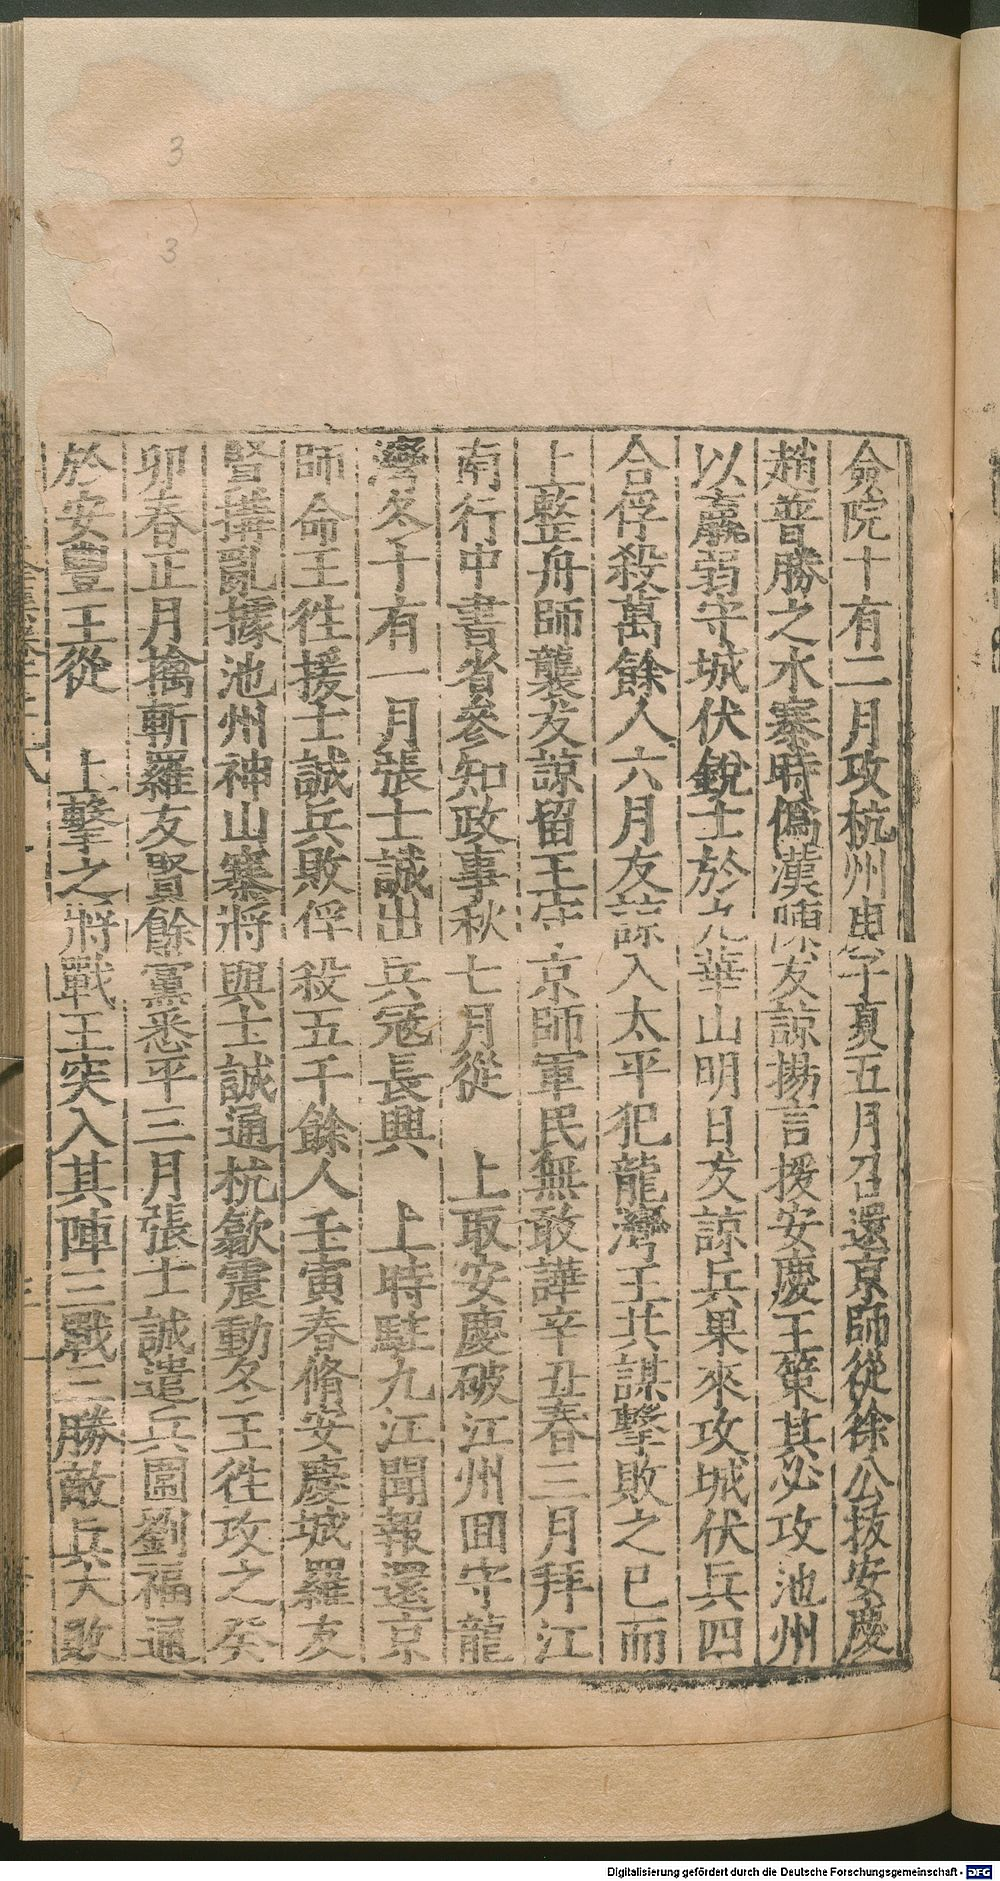 僉院十有二月攻杭州庚子夏五月召還京師從徐公拔安慶
趙普勝之水寨時僞漢陳友諒揚言援安慶王策其必攻池州
以羸弱守城伏銳士於九華山明日友諒兵果來攻城伏兵四
合俘殺萬餘人六月友諒入太平犯龍灣王共謀擊敗之已而
上整舟師襲友諒留王守京師軍民無敢譁辛丑春三月拜江
南行中書省參知政事秋七月從　上取安慶破江州囬守龍
灣冬十有一月張士誠出兵冦長興　上時駐九江聞報還京
師命王徃援士誠兵敗俘殺五千餘人壬寅春脩安慶城羅友
賢搆亂據池州神山寨將與士誠通杭歙震動冬王徃攻之癸
卯春正月擒斬羅友賢餘黨悉平三月張士誠遣兵圍劉福通
於安豐王從　上擊之將戰王突入其陣三戰三勝敵兵大敗
3
3
Digitalisierung gefördert durch die Deutsche Forschungsgemeinschaft - DFG